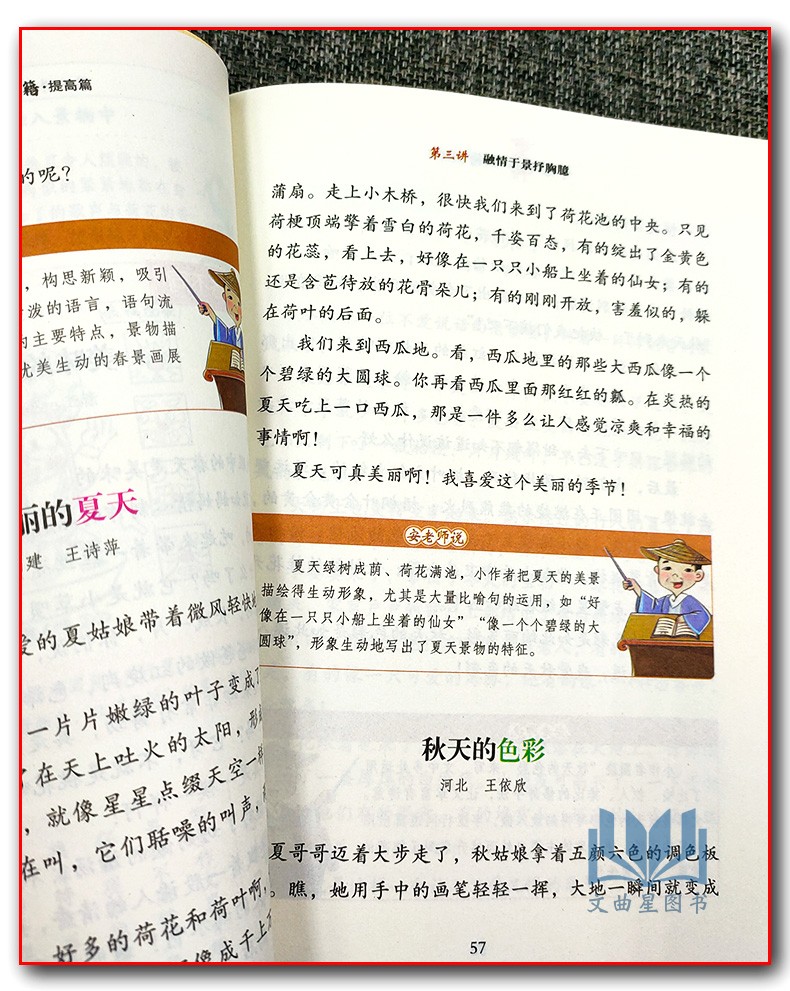 籍·提高篇
的呢？
，构思新颖，吸引
泼的语言，语句流
的主要特点，景物描
优美生动的春景画展
丽的夏天
建 王诗萍
爱的夏姑娘带着微风轻快地
一片片嫩绿的叶子变成了
了在天上吐火的太阳，形
，就像星星点缀天空一样
在叫，它们聒噪的叫声，
好多的荷花和荷叶啊，
像成千上万
第三讲 融情于景抒胸臆
蒲扇。走上小木桥，很快我们来到了荷花池的中央。只见
荷梗顶端擎着雪白的荷花，千姿百态，有的绽出了金黄色
的花蕊，看上去，好像在一只只小船上坐着的仙女；有的
还是含苞待放的花骨朵儿；有的刚刚开放，害羞似的，躲
在荷叶的后面。
我们来到西瓜地。看，西瓜地里的那些大西瓜像一个
个碧绿的大圆球。你再看西瓜里面那红红的瓤。在炎热的
夏天吃上一口西瓜，那是一件多么让人感觉凉爽和幸福的
事情啊！
夏天可真美丽啊！我喜爱这个美丽的季节！
安老师说
夏天绿树成荫、荷花满池，小作者把夏天的美景
描绘得生动形象，尤其是大量比喻句的运用，如“好
像在一只只小船上坐着的仙女”“像一个个碧绿的大
圆球”，形象生动地写出了夏天景物的特征。
秋天的色彩
河北 王依欣
夏哥哥迈着大步走了，秋姑娘拿着五颜六色的调色板
。瞧，她用手中的画笔轻轻一挥，大地一瞬间就变成
文曲星图书
57